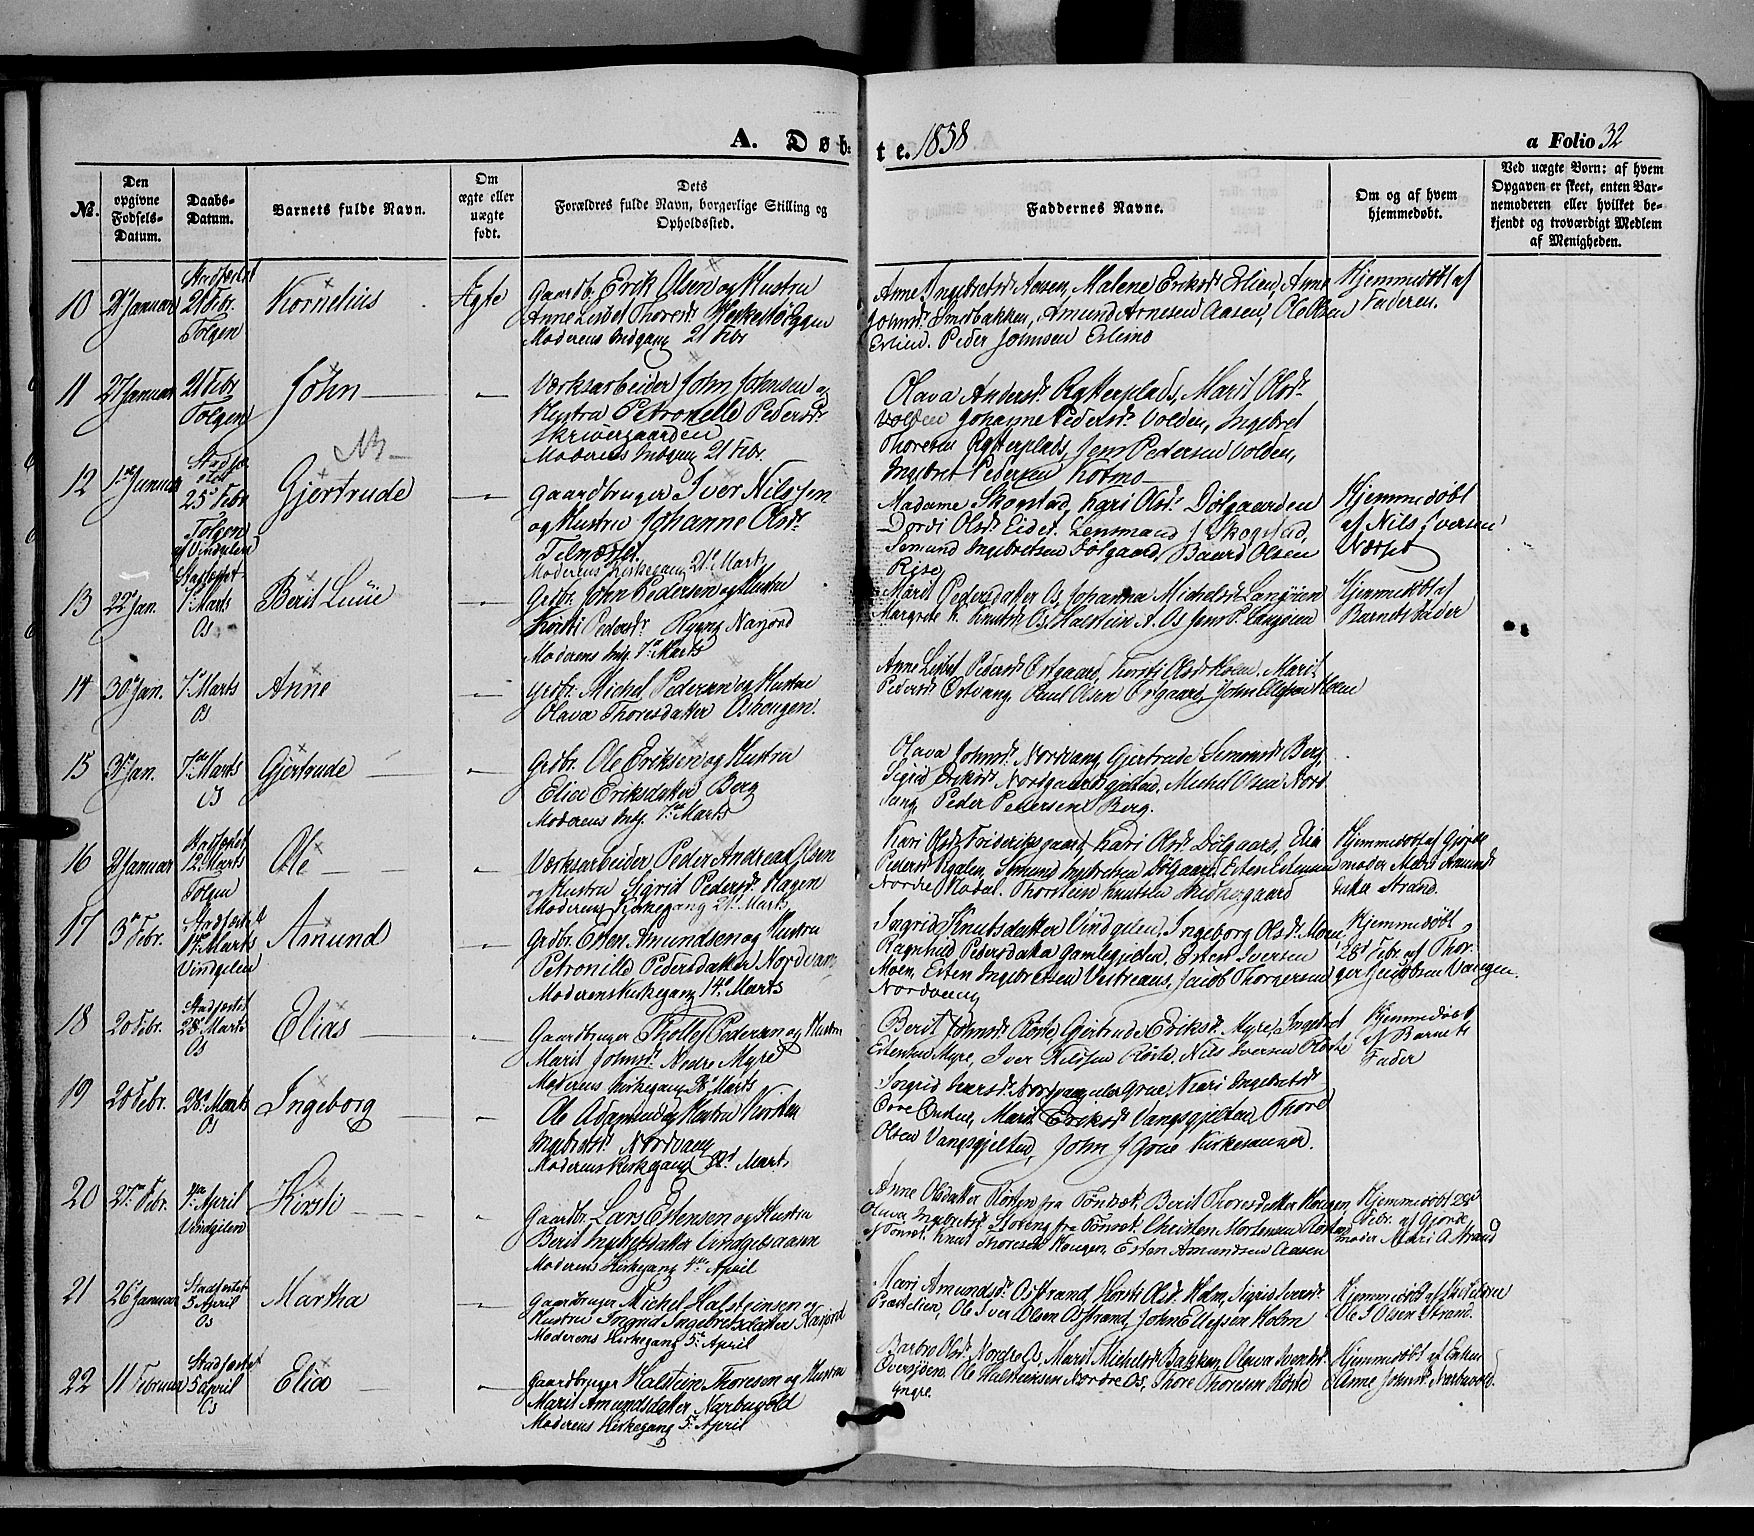 A. Døb-
te. 1858
a Folio 32
No.
Den opgivne Fødsels-Datum.
Daabs-Datum.
Barnets fulde Navn.
Om ægte eller uægte født.
Dets Forældres fulde Navn, borgerlige Stilling og Opholdssted.
Faddernes Navne.
Om og af hvem hjemmedøbt.
Ved uægte Børn: af hvem Opgaven er skeet, enten Barnemoderen eller hvilket bekjendt og troværdigt Medlem af Menigheden.
10
Januar
Stadfæstet
21 Febr.
Tolgen
Kornelius
Ægte
Gaardbr. Erik Olsen og Hustru
Anne Lisbet Thoresdr.
Moderens Indgang 21 Febr
Anne Ingebretsdr. Aasen, Malene Eriksdr Erlien, Anne
Johnsdr. Smedbakken, Amund Arnesen Aasen, Ole Olsen
Erlien. Peder Johnsen Erlien
Hjemmedøbt af
Faderen.
11
27 Januar
21 Febr
Tolgen
John
Værksarbeider John Johnsen og
Hustru Petronelle Pedersdr.
Skrivergaarden
Moderens Indgang 21 Febr.
Olava Andersdr. Rytterplads, Marit Olsdr.
Volden Johanne Pedersdr. Volden, Ingebret
Thoresen Rytterplads, Jens Pedersen Volden,
Ingebret Pedersen Kotmo
12
NB
Januar
Stadfæstet
25 Febr
Tolgen
af Vindgelen
Gjertrude
Gaardbruger Iver Nilssen
og Hustru Johanne Olsdr.
Moderens Kirkegang 21 Marts
Madame Skogstad, Kari Olsdr. Dølgaarden
Dordi Olsdr. Eidet. Lensmand J Skogstad,
Semund Ingebretsen Dølgaard, Baard Olsen
Rise
Hjemmedøbt
af Nils Iversen
13
22 Jan.
7 Marts
Os
Berit
Grdbr. John Pedersen og Hustru
Kirsti Pedersdr. Narjord
Moderens Indg. 7 Marts
Marit Pedersdatter Os, Johanna Michelsdr Langøien
Margrete K. Knutsdr. Os, Halstein A. Os Jens P. Langøien
Hjemmedøbt af
Barnets Fader
14
30 Jan.
7 Marts
Os
Anne
Grdbr. Michel Pedersen og Hustru
Olava Thoresdatter Oshougen.
Anne Lisbet Pedersdr. Østgaard, Kirsti Olsdr. Holm, Marit
Pedersdr Østvang, Paul Olsen Østgaard, John Ellefsen Holm
15
Jan.
7 Marts
Os
Gjertrude
Grdbr. Ole Eriksen og Hustru
Eliæ Eriksdatter Berg
Moderens Indg. 7 Marts
Olava Johnsdr. Nordvang, Gjertrude Semundr Berg,
Sigrid Eriksdr. Nordgaardsgjelten, Michel Olsen Nord
vang Peder Pettersen Berg.
16
Januar
Stadfæstet
12 Marts
Tolgen
Ole
Værksarbeider Peder Andreas Olsen
og Hustru Sigrid Pedersdr. Hagen
Moderens Kirkegang 21 Marts
Kari Olsdr Frideriksgaard, Kari Olsdr. Dølgaard, Elia
Pedersdr. Semund Ingebretsen Dølgaard, Esten Estensen
Nordre Modal. Thorstein Knutsen
Hjemmedøbt af Gjorde
moder Mari Amunds
datter Strand.
17
3 Febr.
Stadfæstet
14 Marts
Vindgelen
Amund
Grdbr. Esten Amundsen og Hustru
Petronille Pedersdatter Nordvang
Moderens Kirkegang 14 Marts
Ingrid Knutsdatter Vindgelen, Ingeborg Olsdr. Moen,
Ragnhild Pedersdatter Gamlegjelten, Esten Iversen
Moen, Esten Ingebretsen Vestreaas, Jacob Thorgersen
Nordvang
Hjemmedøbt
28 Febr. af Thor-
ger Jacobsen Vangen.
18
20 Febr.
Stadfæstet
28 Marts
Os
Elias
Gaardbruger Tholley Pedersen og Hustru
Marit Johnsdr. Nedre Myre
Moderens Kirkegang 28 Marts
Berit Johnsdr. Røste Gjertrude Eriksdr. Myre, Ingebret
Estensen Myre, Iver Nilssen Røste, Nils Iversen Røste
Hjemmedøbt
af Barnets
Fader
19
20 Febr.
28 Marts
Os
Ingeborg
Ole Adamsen og Hustru Kirsten
Ingebretsdr. Nordvang
Moderens Kirkegang 28 Marts
Ingrid Larsdr. Kari Ingebretsdr.
Marit Eriksdr. Vangsgjelten, Thore
Olsen Vangsgjelten, John J
20
27 Febr.
4 April
Vindgelen
Kirsti
Gaardbr. Lars Estensen og Hustru
Berit Ingebretsdatter Vindgelaasen
Moderens Kirkegang 4 April
Anne Olsdatter fra Tønset Berit Thoresdatter Haugen,
Olava Ingebretsdr. fra Tønset. Christen Mortensen
af Tønset. Knut Thoresen Haugen, Esten Amundsen Aasen
Hjemmedøbt 28
Febr. af Gjorde
moder Mari A Strand
21
26 Januar
Stadfæstet
5 April
Os
Martha
Gaardbruger Michel Halsteinsen og
Hustru Ingrid Ingebretsdatter Narjord
Moderens Kirkegang 5 April
Mari Amundsdr. Osstrand, Kirsti Olsdr. Holm, Sigrid Iversdr.
Præstelien, Ole Iver Olsen Osstrand, John Ellefsen Holm
Hjemmedøbt af
Ole I Olsen Strand.
22
11 Februar
Stadfæstet
5 April
Os
Eliæ
Gaardbruger Halstein Thoresen og Hustru
Marit Amundsdatter Narbuvold
Moderens Kirkegang 5 April
Barbro Olsdr. Nordre Os, Marit Michelsdr Bakken, Olava Iversdr.
Oversjøen. Ole Halsteinsen Nordre Os, Thore Thoresen Røste
yngre.
Hjemmedøbt af Enken
Anne Johnsdr. Narbuvold.